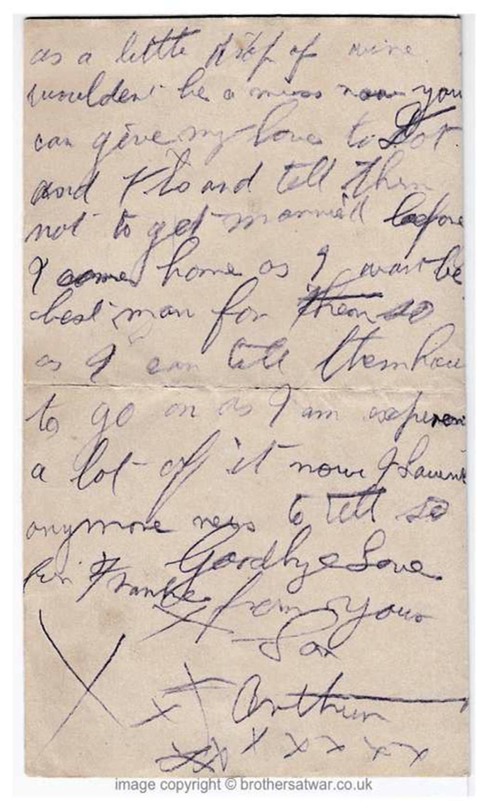 as a little drop of wine
wouldent be a miss now you
can give my love to Dot
and Flo and tell them
not to get married before
I come home as I want be
best man for them so
as I can tell them how
to go on as I am
a lot of it now I havent
anymore news to tell so
Goodbye Love
for Frankie from your
Son
Arthur
image copyright © brothersatwar.co.uk